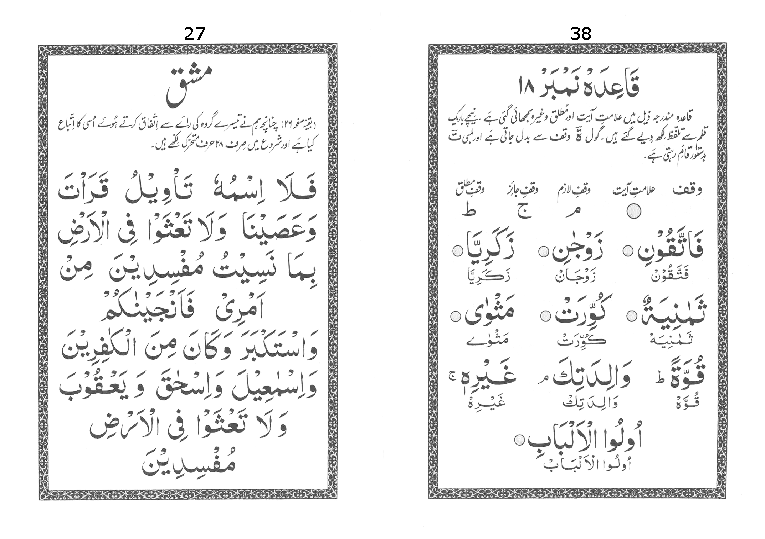 27
مشق
(بقیہ صفحہ ۲۶) چنانچہ ہم نے تیسرے گروہ کی رائے سے اتفاق کرتے ہوئے اسی کا اتباع
کیا ہے اور شروع میں صرف ۲۸ حرف متحرک لکھے ہیں۔
فَلَا اِسْمُهٗ تَأْوِیْلُ قَرَأْتَ
وَعَصَیْنَا وَلَا تَعْثَوْا فِی الْاَرْضِ
بِمَا نَسِیْتُ مُفْسِدِیْنَ مِنْ
اَمْرِیْ فَاَنْجَیْنٰكُمْ
وَاسْتَكْبَرَ وَكَانَ مِنَ الْكٰفِرِیْنَ
وَاِسْمٰعِیْلَ وَاِسْحٰقَ وَیَعْقُوْبَ
وَلَا تَعْثَوْا فِی الْاَرْضِ
مُفْسِدِیْنَ
38
قَاعِدَہ نَمبَر ۱۸
قاعدہ مندرجہ ذیل میں علامتِ آیت اور مطلق وغیرہ سمجھائی گئی ہے۔ نیچے باریک
قلم سے تلفظ لکھ دیے گئے ہیں۔ گول ۃ وقف سے بدل جاتی ہے اور لمبی ت
بدستور قائم رہتی ہے۔
وقف علامتِ آیت وقفِ لازم وقفِ جائز وقفِ مطلق
○ م ج ط
فَاتَّقُوْنِ○ زَوْجٰنِ○ زَكَرِیَّا○
فَتَّقُوْنْ زَوْجَانْ زَكَرِیَّا
ثَمٰنِیَةٌ○ كُوِّرَتْ○ مَثْوٰی○
ثَمٰنِیَهْ كُوِّرَتْ مَثْوٰے
قُوَّةً ط وَالِدَتِكَ م غَیْرِهٖ ج
قُوَّهْ وَالِدَتِكْ غَیْرِهْ
اُولُوا الْاَلْبَابِ○
اُولُوا الْاَلْبَابْ